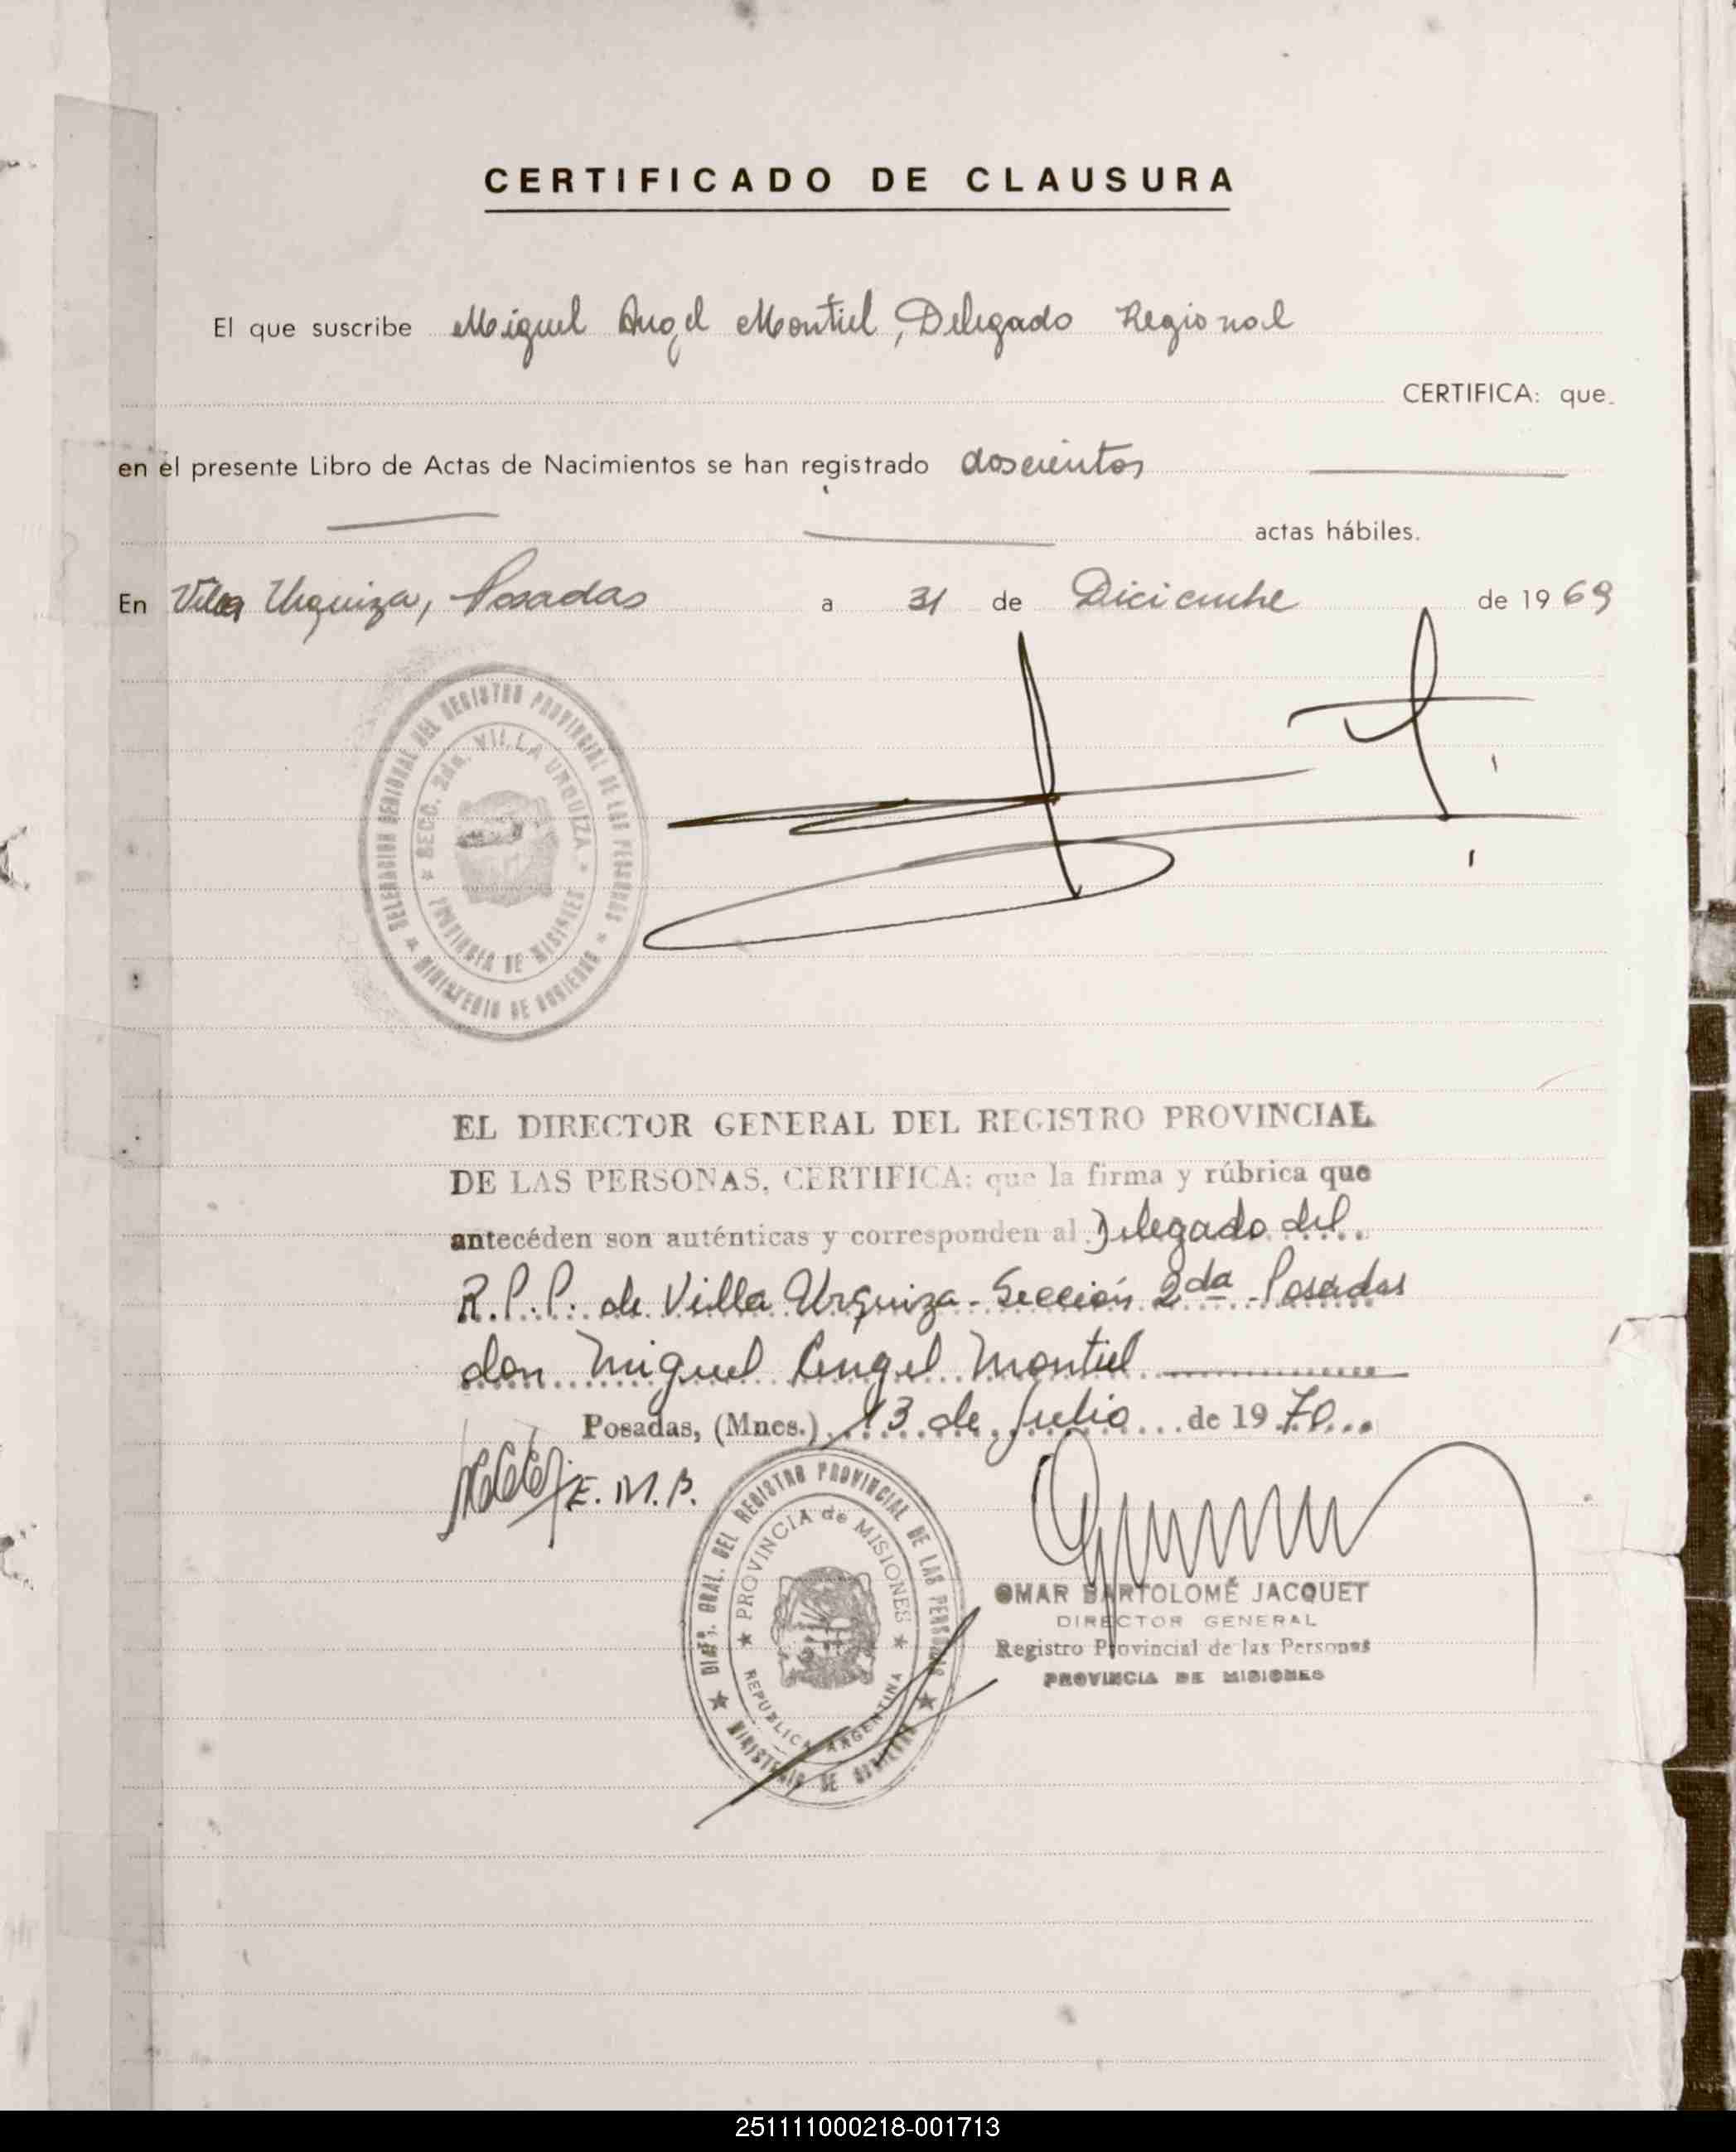 CERTIFICADO DE CLAUSURA
El que suscribe Miguel Angel Montiel, Delegado Regional
CERTIFICA: que
en el presente Libro de Actas de Nacimientos se han registrado doscientos
actas hábiles.
En Villa Urquiza, Posadas a 31 de Diciembre de 1969
DELEGACION REGIONAL DEL REGISTRO PROVINCIAL DE LAS PERSONAS
★ MINISTERIO DE GOBIERNO ★
★ SECC. 2da. VILLA URQUIZA ★
PROVINCIA DE MISIONES
EL DIRECTOR GENERAL DEL REGISTRO PROVINCIAL
DE LAS PERSONAS, CERTIFICA: que la firma y rúbrica que
antecéden son auténticas y corresponden al Delegado del
R.P.P. de Villa Urquiza - Sección 2da - Posadas
don Miguel Angel Montiel
Posadas, (Mnes.) 13 de Julio de 1970
E.M.B.
GRAL. DEL REGISTRO PROVINCIAL DE LAS PERSONAS
★ MINISTERIO DE GOBIERNO ★
★ PROVINCIA de MISIONES ★
REPUBLICA ARGENTINA
OMAR BARTOLOMÉ JACQUET
DIRECTOR GENERAL
Registro Provincial de las Personas
PROVINCIA DE MISIONES
251111000218-001713